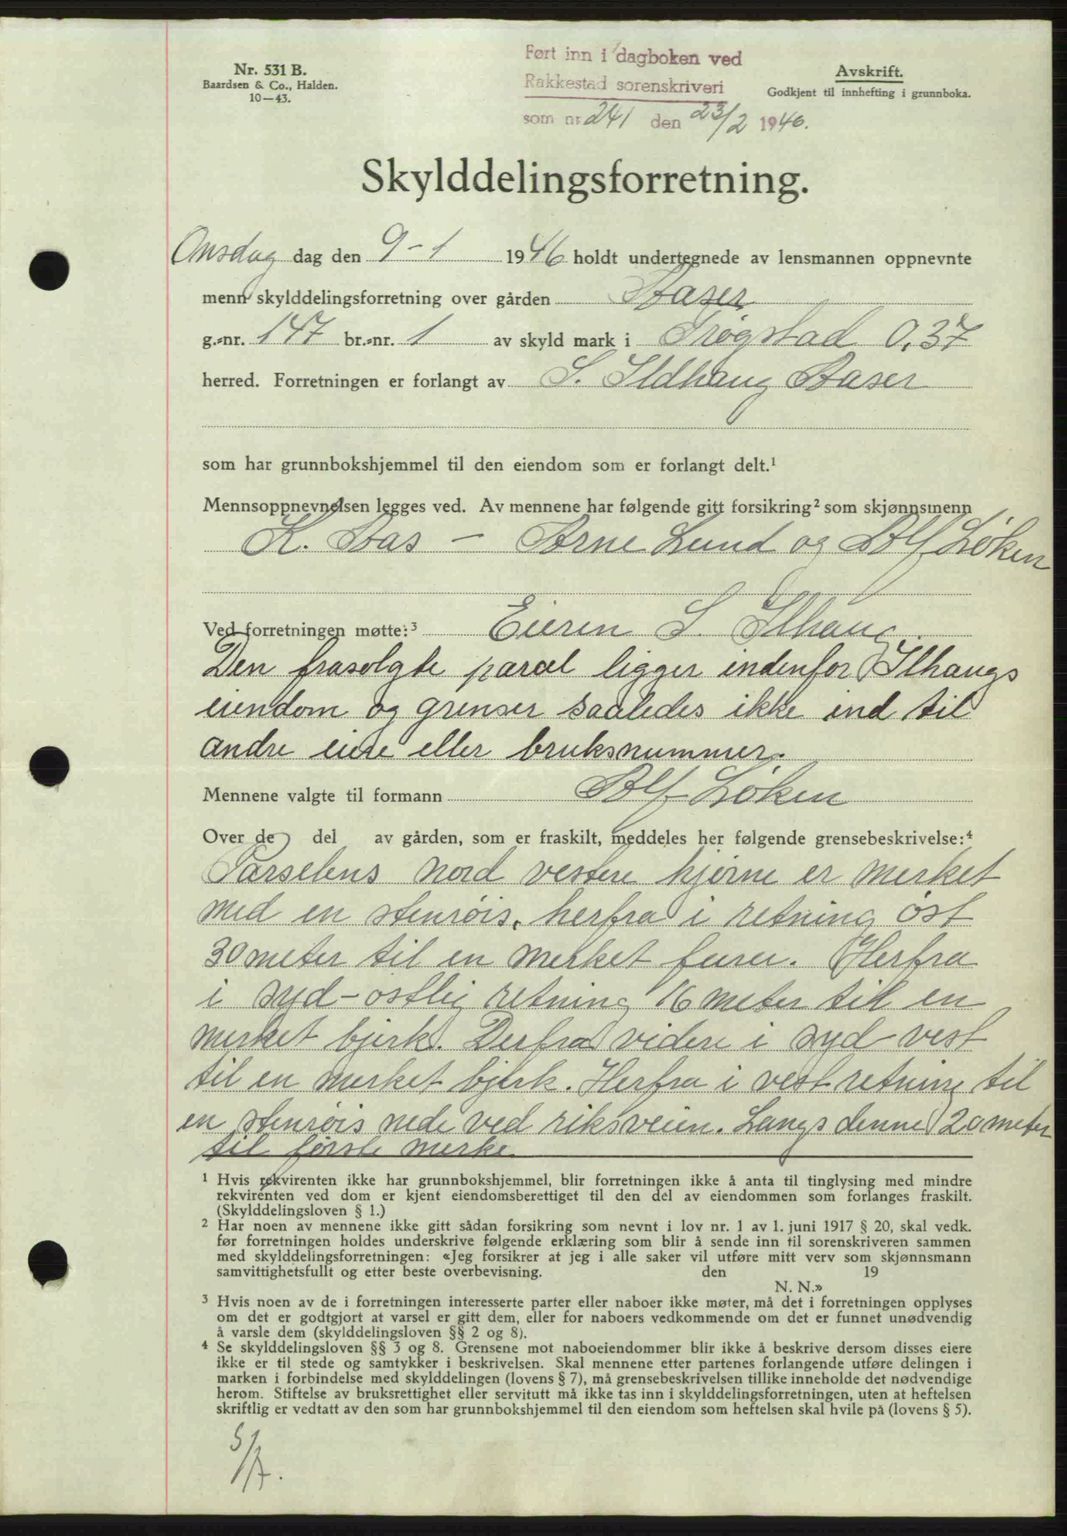 Nr. 531 B.
Baardsen & Co., Halden.
10—43.
Ført inn i dagboken ved
Rakkestad sorenskriveri
som nr. 241 den 23/2 1946.
Avskrift.
Godkjent til innhefting i grunnboka.
Skylddelingsforretning.
Onsdag dag den 9-1 1946 holdt undertegnede av lensmannen oppnevnte
menn skylddelingsforretning over gården Aaser
g.-nr. 147 br.-nr. 1 av skyld mark i Trøgstad 0,37
herred. Forretningen er forlangt av S. Ildhaug Aaser
som har grunnbokshjemmel til den eiendom som er forlangt delt.¹
Mennsoppnevnelsen legges ved. Av mennene har følgende gitt forsikring² som skjønnsmenn
K. Aas – Arne Lund og Alf Løken
Ved forretningen møtte:³ Eieren S. Ilhaug.
Den frasolgte parcel ligger indenfor Ilhaugs
eiendom og grenser saaledes ikke ind til
andre eiere eller bruksnummer.
Mennene valgte til formann Alf Løken
Over de del av gården, som er fraskilt, meddeles her følgende grensebeskrivelse:⁴
Parselens nord vestere hjørne er merket
med en stenrøis, herfra i retning øst
30 meter til en merket furu. Herfra
i syd-ostlig retning 16 meter til en
merket bjerk. Derfra videre i syd-vest
til en merket bjerk. Herfra i vest retning til
en stenrøis nede ved riksveien. Langs denne 20 meter
til første merke.
¹ Hvis rekvirenten ikke har grunnbokshjemmel, blir forretningen ikke å anta til tinglysing med mindre
rekvirenten ved dom er kjent eiendomsberettiget til den del av eiendommen som forlanges fraskilt.
(Skylddelingsloven § 1.)
² Har noen av mennene ikke gitt sådan forsikring som nevnt i lov nr. 1 av 1. juni 1917 § 20, skal vedk.
før forretningen holdes underskrive følgende erklæring som blir å sende inn til sorenskriveren sammen
med skylddelingsforretningen: «Jeg forsikrer at jeg i alle saker vil utføre mitt verv som skjønnsmann
samvittighetsfullt og etter beste overbevisning. den 19
N. N.»
³ Hvis noen av de i forretningen interesserte parter eller naboer ikke møter, må det i forretningen opplyses
om det er godtgjort at varsel er gitt dem, eller for naboers vedkommende om det er funnet unødvendig
å varsle dem (skylddelingsloven §§ 2 og 8).
⁴ Se skylddelingsloven §§ 3 og 8. Grensene mot naboeiendommer blir ikke å beskrive dersom disses eiere
ikke er til stede og samtykker i beskrivelsen. Skal mennene etter partenes forlangende utføre delingen i
marken i forbindelse med skylddelingen (lovens § 7), må grensebeskrivelsen tillike inneholde det nødvendige
herom. Stiftelse av bruksrettighet eller servitutt må ikke tas inn i skylddelingsforretningen, uten at heftelsen
skriftlig er vedtatt av den som har grunnbokshjemmel til den eiendom som heftelsen skal hvile på (lovens § 5).